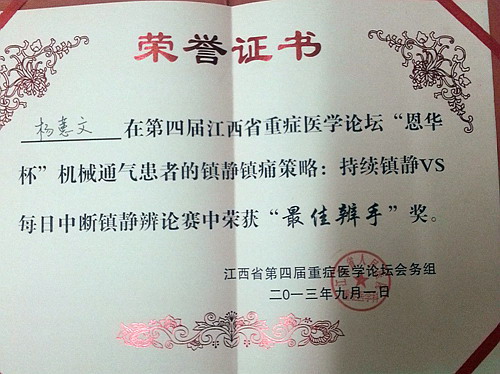 荣誉证书
杨惠文 在第四届江西省重症医学论坛“恩华
杯”机械通气患者的镇静镇痛策略：持续镇静VS
每日中断镇静辨论赛中荣获“最佳辩手”奖。
江西省第四届重症医学论坛会务组
二〇一三年九月一日